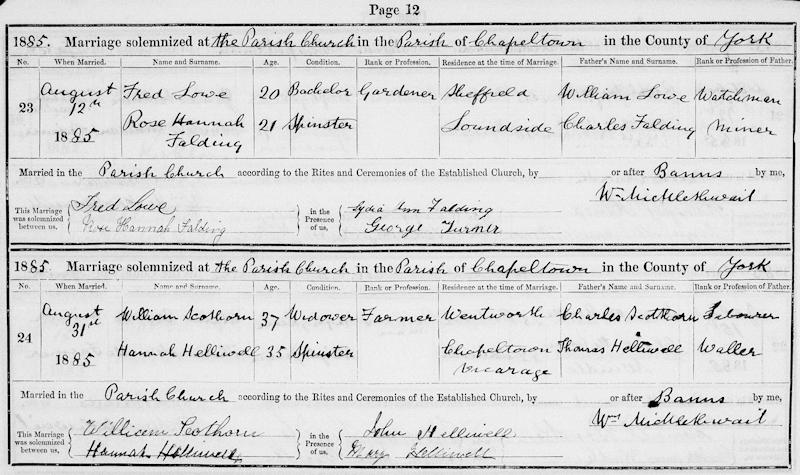 Page 12
1885. Marriage solemnized at the Parish Church in the Parish of Chapeltown in the County of York
No. When Married. Name and Surname. Age. Condition. Rank or Profession. Residence at the time of Marriage. Father's Name and Surname. Rank or Profession of Father.
23 August 12th 1885 Fred Lowe 20 Bachelor Gardener Sheffield William Lowe Watchman
Rose Hannah Falding 21 Spinster Loundside Charles Falding Miner
Married in the Parish Church according to the Rites and Ceremonies of the Established Church, by or after Banns by me,
Wm Micklethwait
This Marriage was solemnized between us, Fred Lowe in the Presence of us, Lydia Ann Falding
Rose Hannah Falding George Turner
1885. Marriage solemnized at the Parish Church in the Parish of Chapeltown in the County of York
No. When Married. Name and Surname. Age. Condition. Rank or Profession. Residence at the time of Marriage. Father's Name and Surname. Rank or Profession of Father.
24 August 31st 1885 William Scothorn 37 Widower Farmer Wentworth Charles Scothorn Labourer
Hannah Helliwell 35 Spinster Chapeltown Vicarage Thomas Helliwell Waller
Married in the Parish Church according to the Rites and Ceremonies of the Established Church, by or after Banns by me,
Wm Micklethwait
This Marriage was solemnized between us, William Scothorn in the Presence of us, John Helliwell
Hannah Helliwell Mary Helliwell